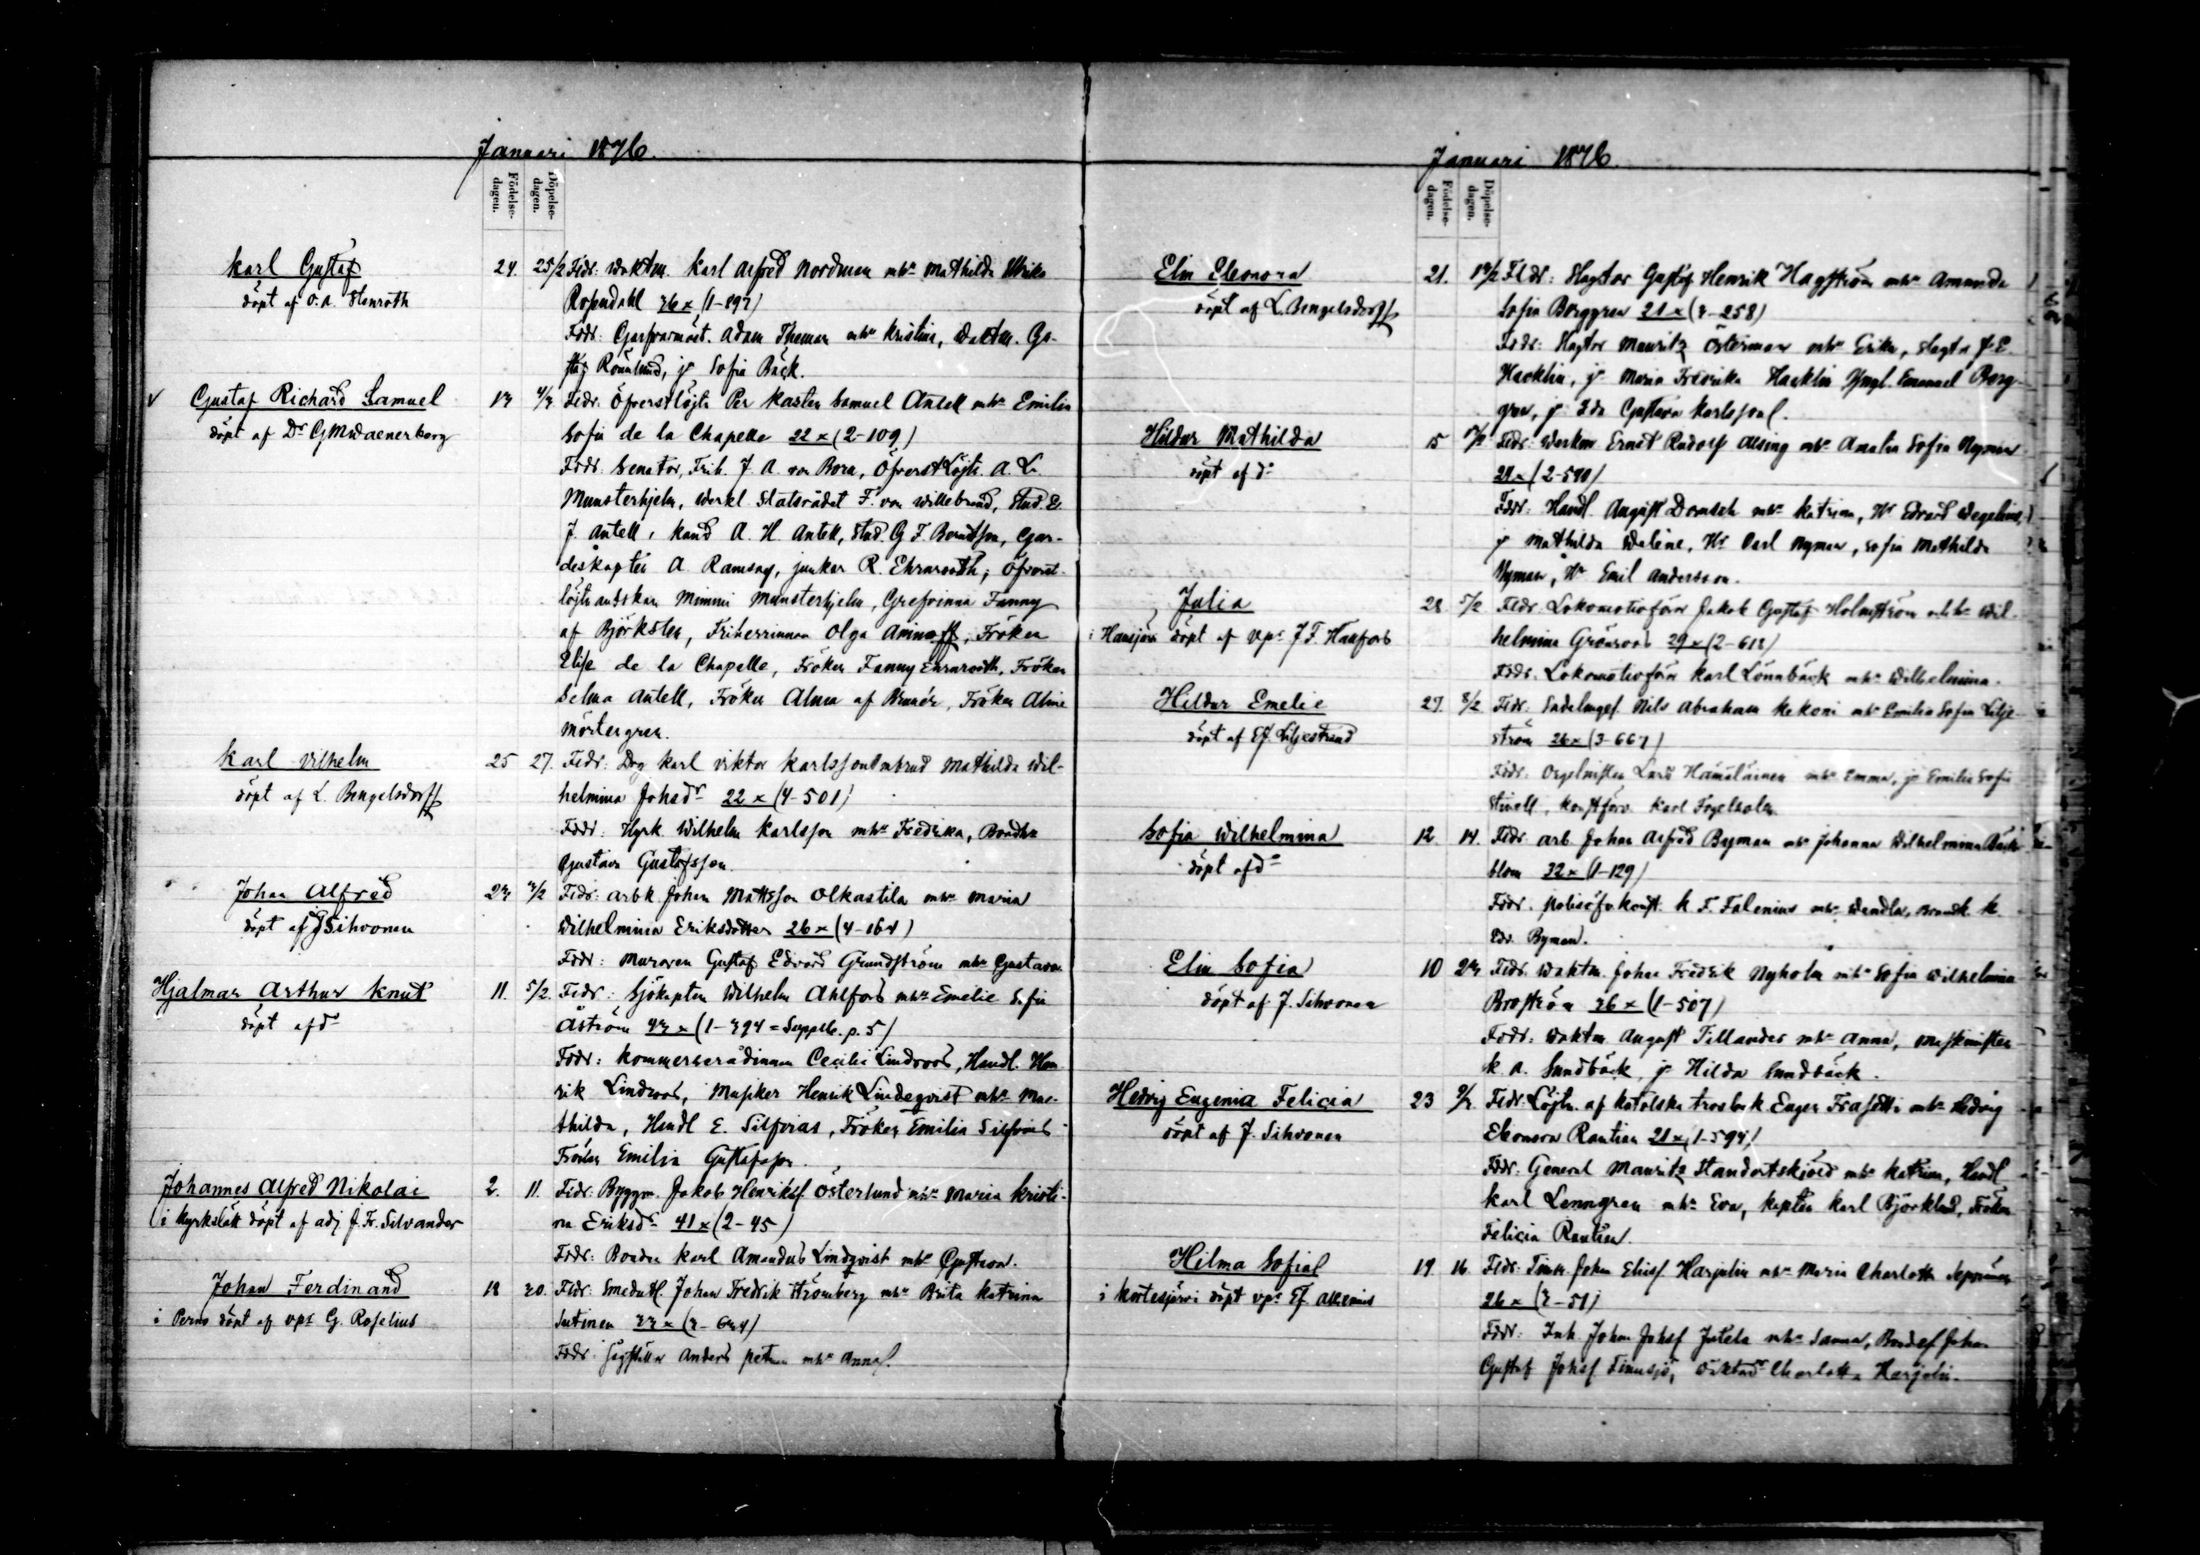 Januari 1876.
Födelse-dagen.
Döpelse-dagen.
Karl Gustaf
döpt af O. A. Stenroth
24. 25/2 Fldr: Waktm. Karl Alfred Nordman mhu Mathilda Ulrika
Rosendahl 36 x (1-892)
Fddr: Adam Theman mhu Kristina, Waktm. Gu-
staf Rönnlund, jr Sofia Bäck.
Gustaf Richard Samuel
döpt af Dr G M Waenerberg
13 4/3 Fldr: Öfverstlöjtn Per Karsten Samuel Antell mhu Emilia
Sofia de la Chapelle 22 x (2-109)
Fddr: Senator, Frih. J. A. von Born, Öfverstlöjtn. A. L.
Munsterhjelm, Werkl. Statsrådet F. von Willebrand, Stud. E.
J. Antell, Kand A. H. Antell, Stud. G. F. Berndtson, Gar-
deskapten A. Ramsay, junker R. Ehrnrooth, Öfverst-
löjtnandskan Mimmi Munsterhjelm, Grefvinnan Fanny
af Björkstén, Friherrinnan Olga Aminoff, Fröken
Elise de la Chapelle, Fröken Fanny Ehrnrooth, Fröken
Selma Antell, Fröken Alma af Brunér, Fröken Aline
Mörtengren.
Karl Vilhelm
döpt af L. Bengelsdorff
25 27. Fldr: Drg Karl Viktor Karlsson Mathilda Wil-
helmina Johsdr 22 x (4-501)
Fddr: Hyrk. Wilhelm Karlsson mhu Fredrika, Bondhu
Gustava Gustafsson.
Johan Alfred
döpt af J Sihvonen
23 3/2 Fldr: arbk. Johan Mattsson Olkastila mhu Maria
Wilhelmina Eriksdotter 26 x (4-164)
Fddr: Muraren Gustaf Edvard Grundström mhu Gustava
Hjalmar Arthur Knut
döpt af do
11. 5/2. Fldr: Sjökapten Wilhelm Ahlfors mhu Emelie Sofia
Åström 43 x (1-394 = Supplb. p. 5)
Fddr: Kommerserådinnan Cecilia Lindroos, Handl. Hen-
rik Lindroos, Musiker Henrik Lindeqvist mhu Ma-
thilda, Handl E. Silfvras, Fröken Emilia
Fröken Emilia Gustafsson.
Johannes Alfred Nikolai
i Kyrkslätt döpt af adj J. Fr. Silvander
2. 11. Fldr: Byggm. Jakob Henrikss. Österlund mhu Maria Kristi-
na Eriksdr 41 x (2-45)
Fddr: Bonden Karl Amandus Lindqvist mhu Gustava.
Johan Ferdinand
i Perno döpt af vps G. Roselius
18 30. Fldr: Johan Fredrik Strömberg mhu Brita Katrina
Sutinen 33 x (3-634)
Fddr: Anders mhu Anna.
Januari 1876.
Födelse-dagen.
Döpelse-dagen.
Elin Eleonora
döpt af L. Bengelsdorff
21. 13/2 Fldr: Slagtar Gustaf Henrik Hagström mhu Amanda
Sofia Borggren 21 x (3-258)
Fddr: Slagtar Mauritz Österman mhu Erika, Slagtar J. E.
Hacklin, jr Maria Fredrika Hacklin Yngl. Emanuel Borg-
gren, jr Ida Gustava Karlsson.
Hildur Mathilda
döpt af do
15 Fldr: Werkm. Ernst Rudolf Alsing mhu Amalia Sofia Nyman
24 x (2-540)
Fddr: Handl. August Domsch mhu Katrina, Hr Edvard Wegelius,
jr Mathilda Waline, Hr Carl Nyman, Sofia Mathilda
Nyman, Hr Emil Andersson.
Julia
i Hausjärvi döpt af vps J. F. Hasfors
28 5/2 Fldr: Lokomotivförar Jakob Gustaf Holmström mhu Wil-
helmina Grönroos 29 x (2-618)
Fddr: Lokomotivförar Karl Lönnbäck mhu Wilhelmina.
Hildur Emelie
döpt af Ef. Liljestrand
27. 8/2 Fldr: Nils Abraham Kekoni mhu Emilia Sofia Lilje-
ström 26 x (3-667)
Fddr: Orgelnisten Lars Hämäläinen mhu Emma, jr Emilia Sofia
Karl Fogelholm.
Sofia Wilhelmina
döpt af do
12 14. Fldr: arb. Johan Alfred Byman mhu Johanna Wilhelmina Bäck-
blom 32 x (1-129)
Fddr: K. F. Falenius mhu Wendla, K.
Edv. Byman.
Elin Sofia
döpt af J. Sihvonen
10 23 Fldr: Waktm. Johan Fredrik Nyholm mhu Sofia Wilhelmina
Broström 36 x (1-507)
Fddr: Waktm. August Tillander mhu Anna, Maskinisten
K. A. Sundbäck, jr Hilda Sundbäck.
Hedvig Eugenia Felicia
döpt af J. Sihvonen
23 9/3. Fldr: Löjtn. af Katolska trosbek. Eugen Frasetti mhu Hedvig
Eleonora Rantien 21 x (1-594)
Fddr: General Mauritz Standertskjöld mhu Katrina, Handl
Karl Lenngren mhu Eva, Kapten Karl Björklund, Fröken
Felicia Rantien.
Hilma Sofia
i Kortesjärvi döpt vps Ef.
19 16. Fldr: Johan Eliass. Harjulin mhu Maria Charlotta
26 x (3-51)
Fddr: Inh. Johan Johss. Jutela mhu Sanna, Bondes. Johan
Gustaf Johss. Charlotta Harjulin.